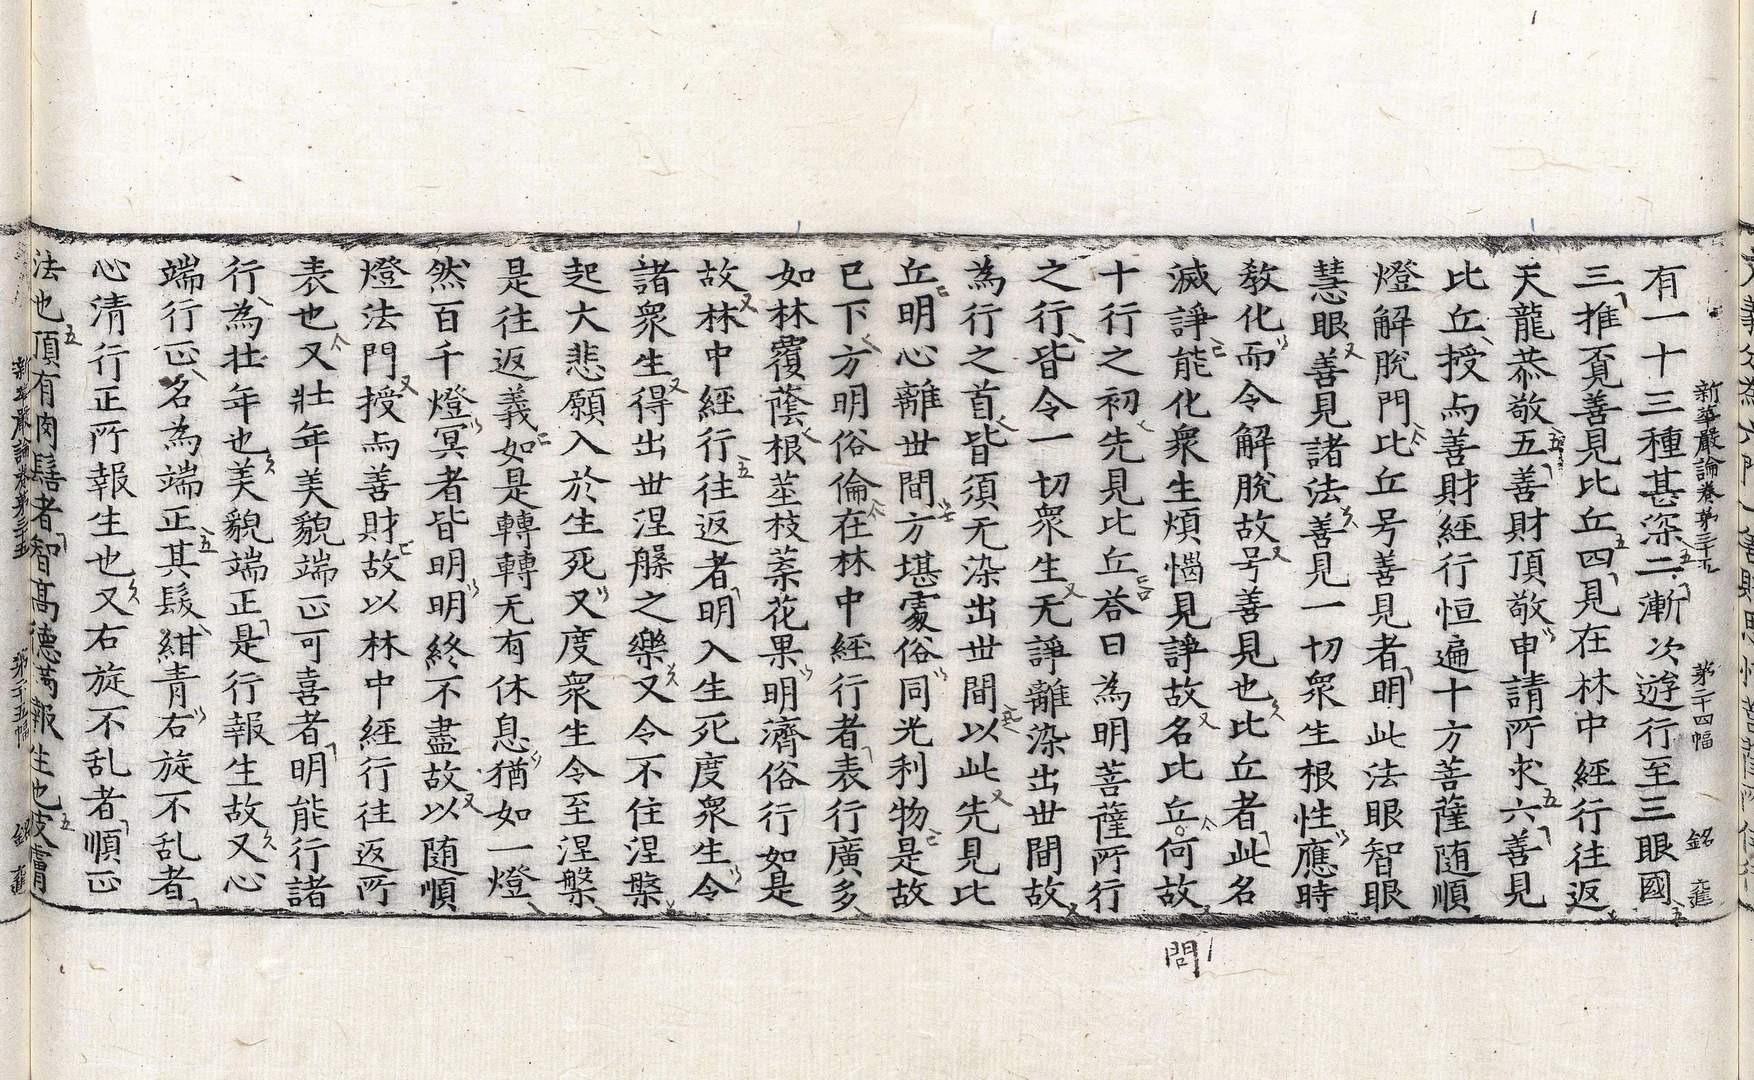 新華嚴論卷第三十五　第二十四幅　銘
有一十三種甚深二漸次遊行至三眼國
三推覔善見比丘四見在林中經行往返
天龍恭敬五善財頂敬申請所求六善見
比丘授与善財經行恒遍十方菩薩随順
燈解脫門比丘号善見者明此法眼智眼
慧眼善見諸法善見一切衆生根性應時
教化而令解脫故号善見也比丘者此名
滅諍能化衆生煩惱見諍故名比丘何故
十行之初先見比丘荅曰為明菩薩所行
之行皆令一切衆生无諍離染出世間故
為行之首皆須无染出世間以此先見比
丘明心離世間方堪䝉俗同光利物是故
已下方明俗倫在林中經行者表行廣多
如林覆蔭根莖枝葉花果明濟俗行如是
故林中經行往返者明入生死度衆生令
諸衆生得出世涅槃之樂又令不住涅槃
起大悲願入於生死又度衆生令至涅槃
是往返義如是轉轉无有休息猶如一燈
然百千燈冥者皆明明終不盡故以随順
燈法門授与善財故以林中經行往返所
表也又壯年美貌端正可喜者明能行諸
行為壯年也美貌端正是行報生故又心
端行正名為端正其髮紺青右旋不乱者
心清行正所報生也又右旋不乱者順正
法也頂有肉髻者智高德萬報生也皮膚
新華嚴論卷第三十五　第二十五幅　銘
問